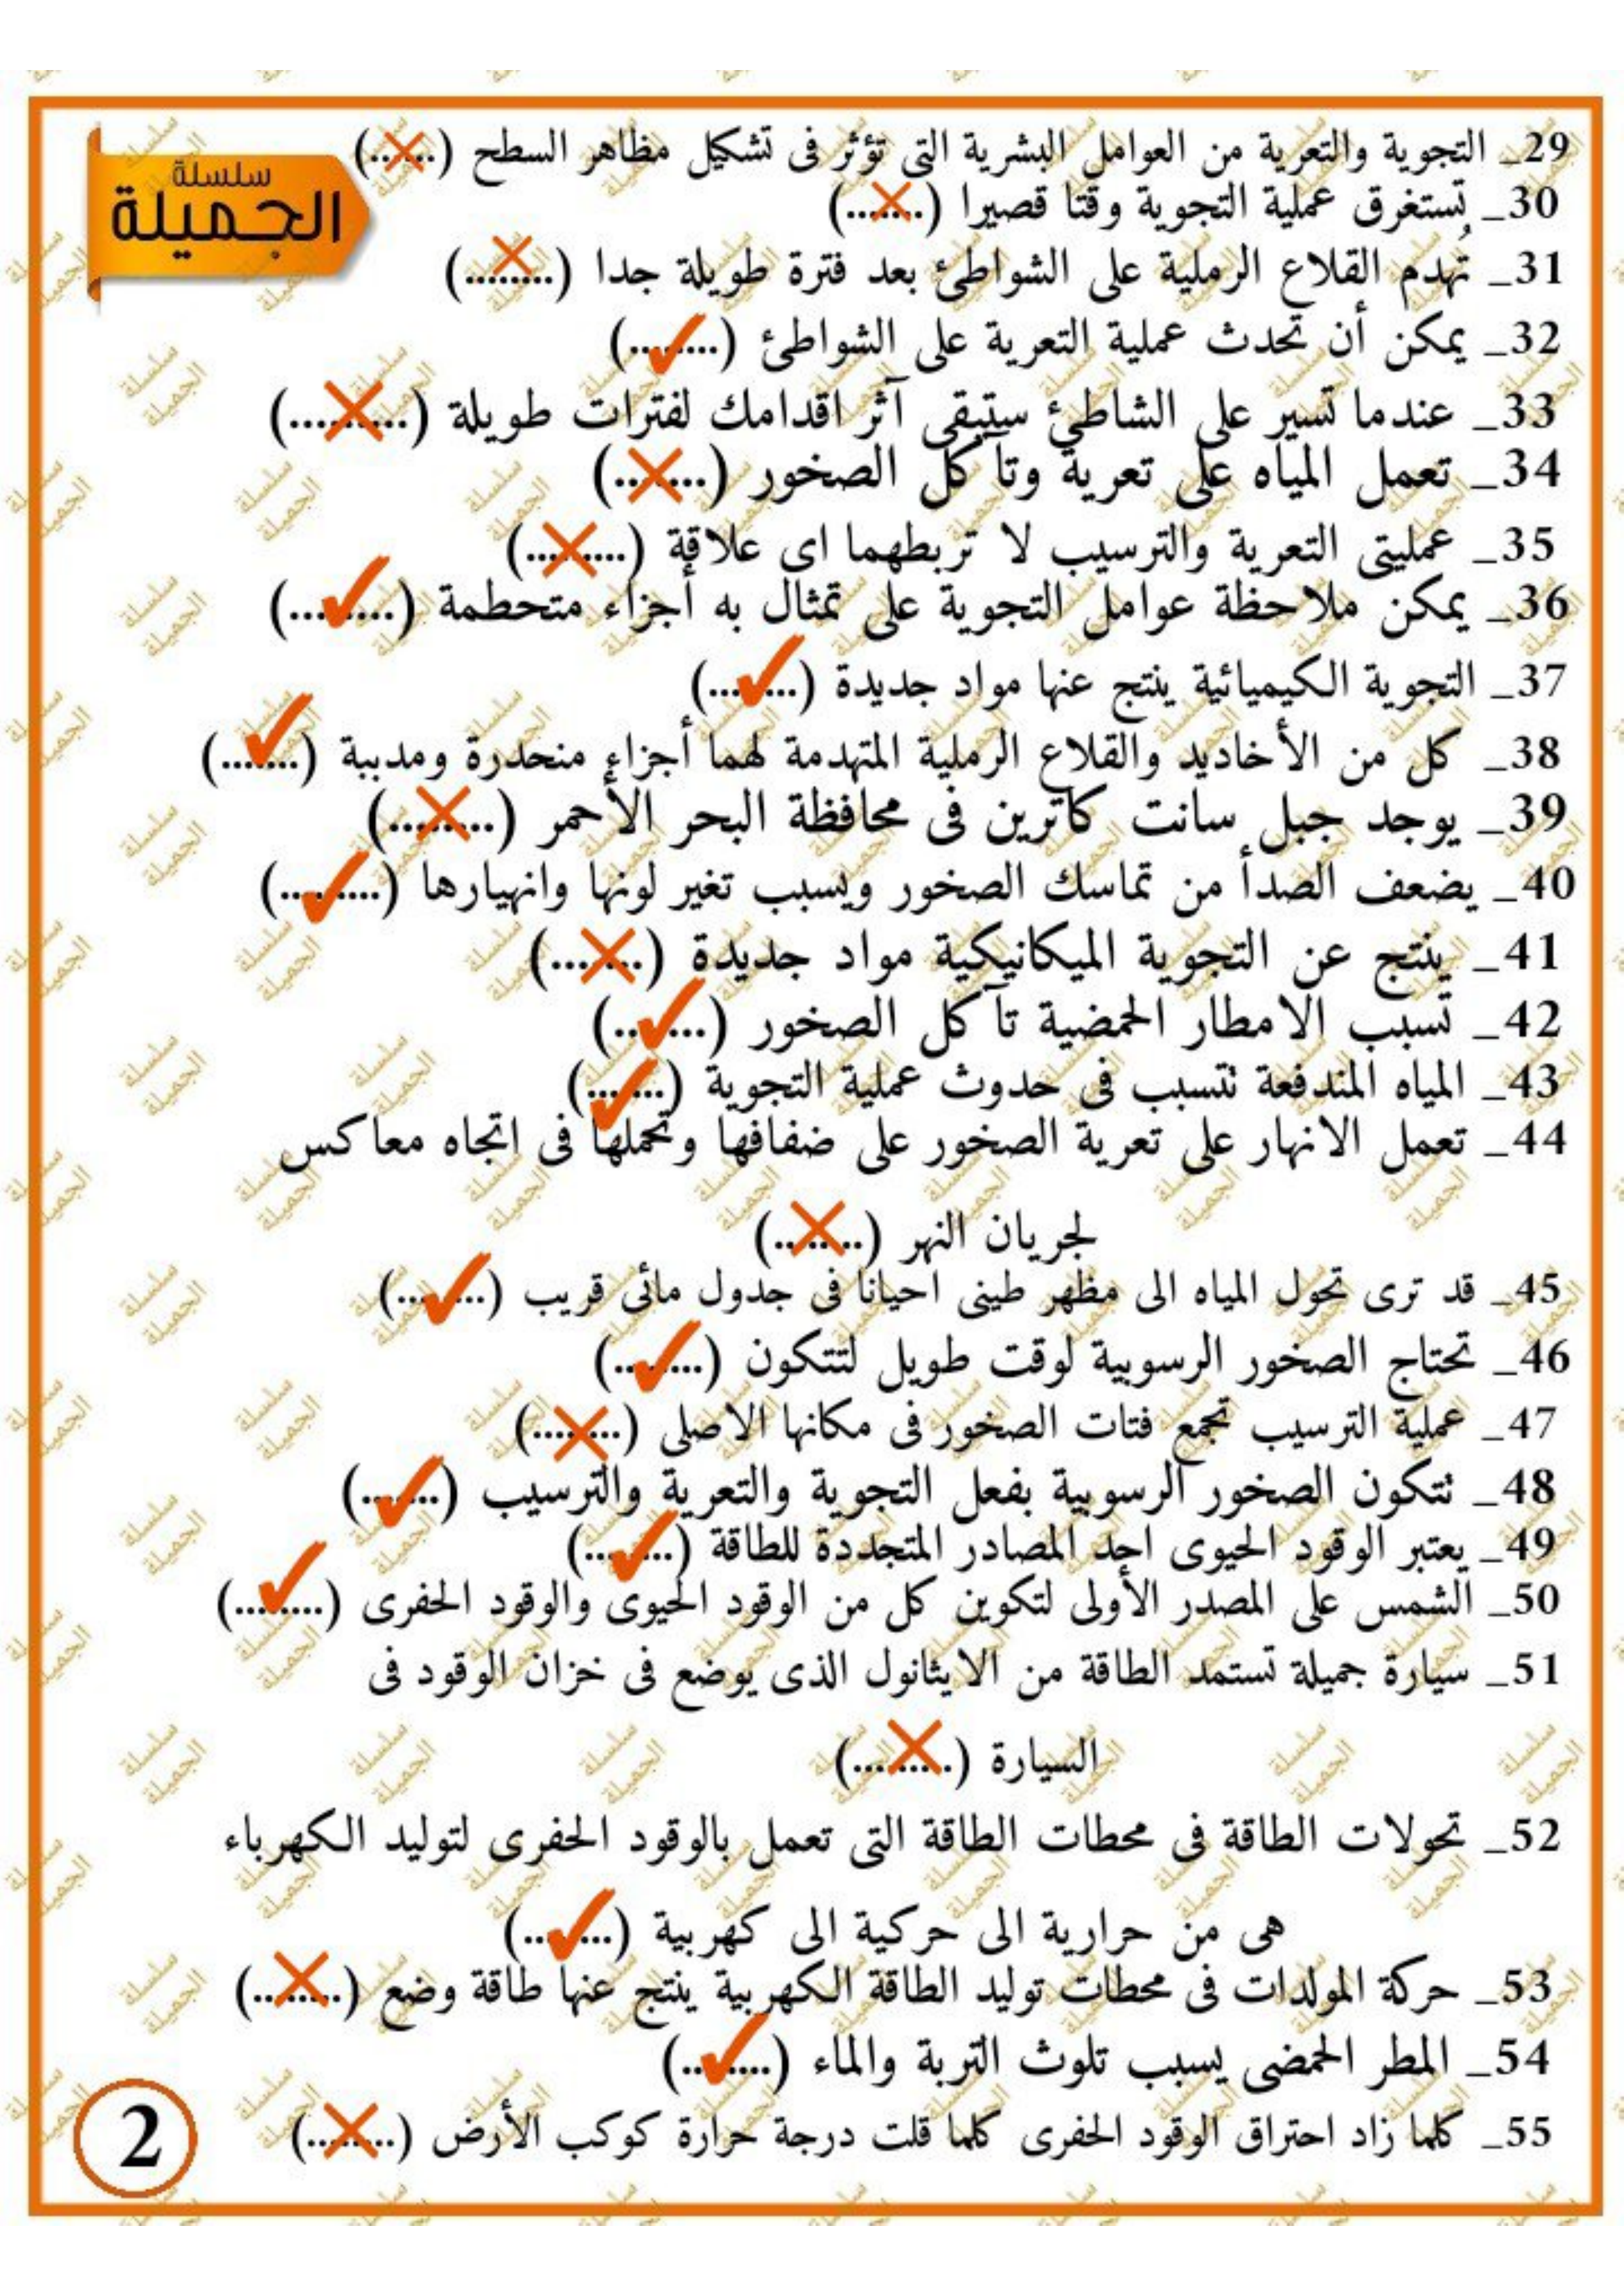 سلسلة
الجميلة
29_ التجوية والتعرية من العوامل البشرية التى تؤثر فى تشكيل مظاهر السطح (..✗..)
30_ تستغرق عملية التجوية وقتا قصيرا (..✗..)
31_ تُهدم القلاع الرملية على الشواطئ بعد فترة طويلة جدا (..✗..)
32_ يمكن أن تحدث عملية التعرية على الشواطئ (..✓..)
33_ عندما تسير على الشاطئ ستبقى آثر اقدامك لفترات طويلة (..✗..)
34_ تعمل المياه على تعرية وتآكل الصخور (..✗..)
35_ عمليتى التعرية والترسيب لا تربطهما اى علاقة (..✗..)
36_ يمكن ملاحظة عوامل التجوية على تمثال به أجزاء متحطمة (..✓..)
37_ التجوية الكيميائية ينتج عنها مواد جديدة (..✓..)
38_ كل من الأخاديد والقلاع الرملية المتهدمة لهما أجزاء منحدرة ومدببة (..✓..)
39_ يوجد جبل سانت كاترين فى محافظة البحر الأحمر (..✗..)
40_ يضعف الصدأ من تماسك الصخور ويسبب تغير لونها وانهيارها (..✓..)
41_ ينتج عن التجوية الميكانيكية مواد جديدة (..✗..)
42_ تسبب الامطار الحمضية تآكل الصخور (..✓..)
43_ المياه المندفعة تتسبب فى حدوث عملية التجوية (..✓..)
44_ تعمل الانهار على تعرية الصخور على ضفافها وتحملها فى اتجاه معاكس
لجريان النهر (..✗..)
45_ قد ترى تحول المياه الى مظهر طينى احيانا فى جدول مائى قريب (..✓..)
46_ تحتاج الصخور الرسوبية لوقت طويل لتتكون (..✓..)
47_ عملية الترسيب تجمع فتات الصخور فى مكانها الاصلى (..✗..)
48_ تتكون الصخور الرسوبية بفعل التجوية والتعرية والترسيب (..✓..)
49_ يعتبر الوقود الحيوى احد المصادر المتجددة للطاقة (..✓..)
50_ الشمس على المصدر الأولى لتكوين كل من الوقود الحيوى والوقود الحفرى (..✓..)
51_ سيارة جميلة تستمد الطاقة من الايثانول الذى يوضع فى خزان الوقود فى
السيارة (..✗..)
52_ تحولات الطاقة فى محطات الطاقة التى تعمل بالوقود الحفرى لتوليد الكهرباء
هى من حرارية الى حركية الى كهربية (..✓..)
53_ حركة المولدات فى محطات توليد الطاقة الكهربية ينتج عنها طاقة وضع (..✗..)
54_ المطر الحمضى يسبب تلوث التربة والماء (..✓..)
55_ كلما زاد احتراق الوقود الحفرى كلما قلت درجة حرارة كوكب الأرض (..✗..)
2